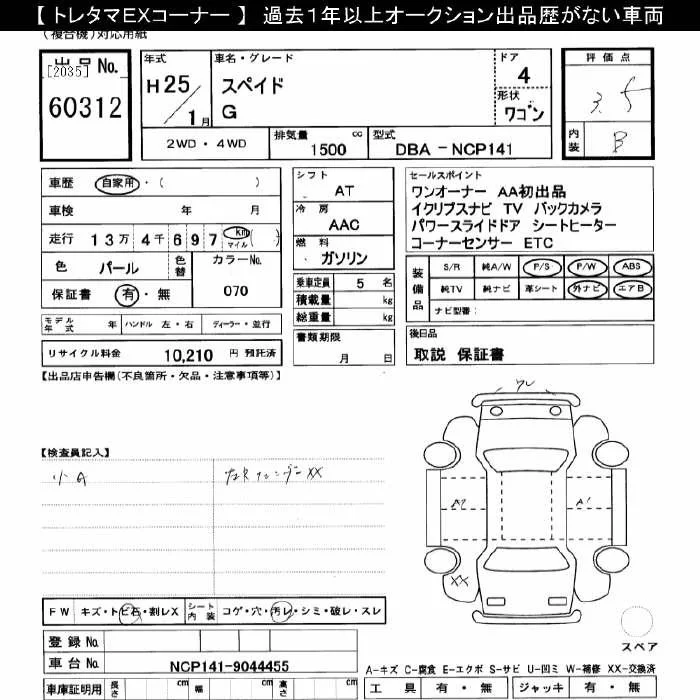 【 トレタマEXコーナー 】 過去１年以上オークション出品歴がない車両
(複合機)対応用紙
出品No.
[2035]
60312
年式
H 25/1月
車名・グレード
スペイド
G
ドア
4
形状
ワゴン
評価点
3.5
内装
B
2WD・4WD
排気量 cc
1500
型式
DBA－NCP141
車歴 自家用・( )
車検 年 月
走行 13万4千697 km マイル ( )
色 パール
色替
カラーNo.
070
保証書 有・無
シフト
AT
冷房
AAC
燃料
ガソリン
乗車定員 5 名
積載量 kg
総重量 kg
セールスポイント
ワンオーナー AA初出品
イクリプスナビ TV バックカメラ
パワースライドドア シートヒーター
コーナーセンサー ETC
装備品
S/R 純A/W P/S P/W ABS
純TV 純ナビ 革シート 外ナビ エアB
ナビ型番：
モデル年式 年 ハンドル 左・右 ディーラー・並行
リサイクル料金 10,210 円 預託済
書類期限
月 日
後日品
取説 保証書
【出品店申告欄(不良箇所・欠品・注意事項等)】
【検査員記入】
小A
XX
ワレ
A1
XX
FW キズ・トビ石・割レX
シート内装 コゲ・穴・汚レ・シミ・破レ・スレ
登録No.
車台No. NCP141-9044455
車庫証明用 長さ cm 幅 cm 高さ cm
スペア
A-キズ C-腐食 E-エクボ S-サビ U-凹ミ W-補修 XX-交換済
工具 有・無 ジャッキ 有・無